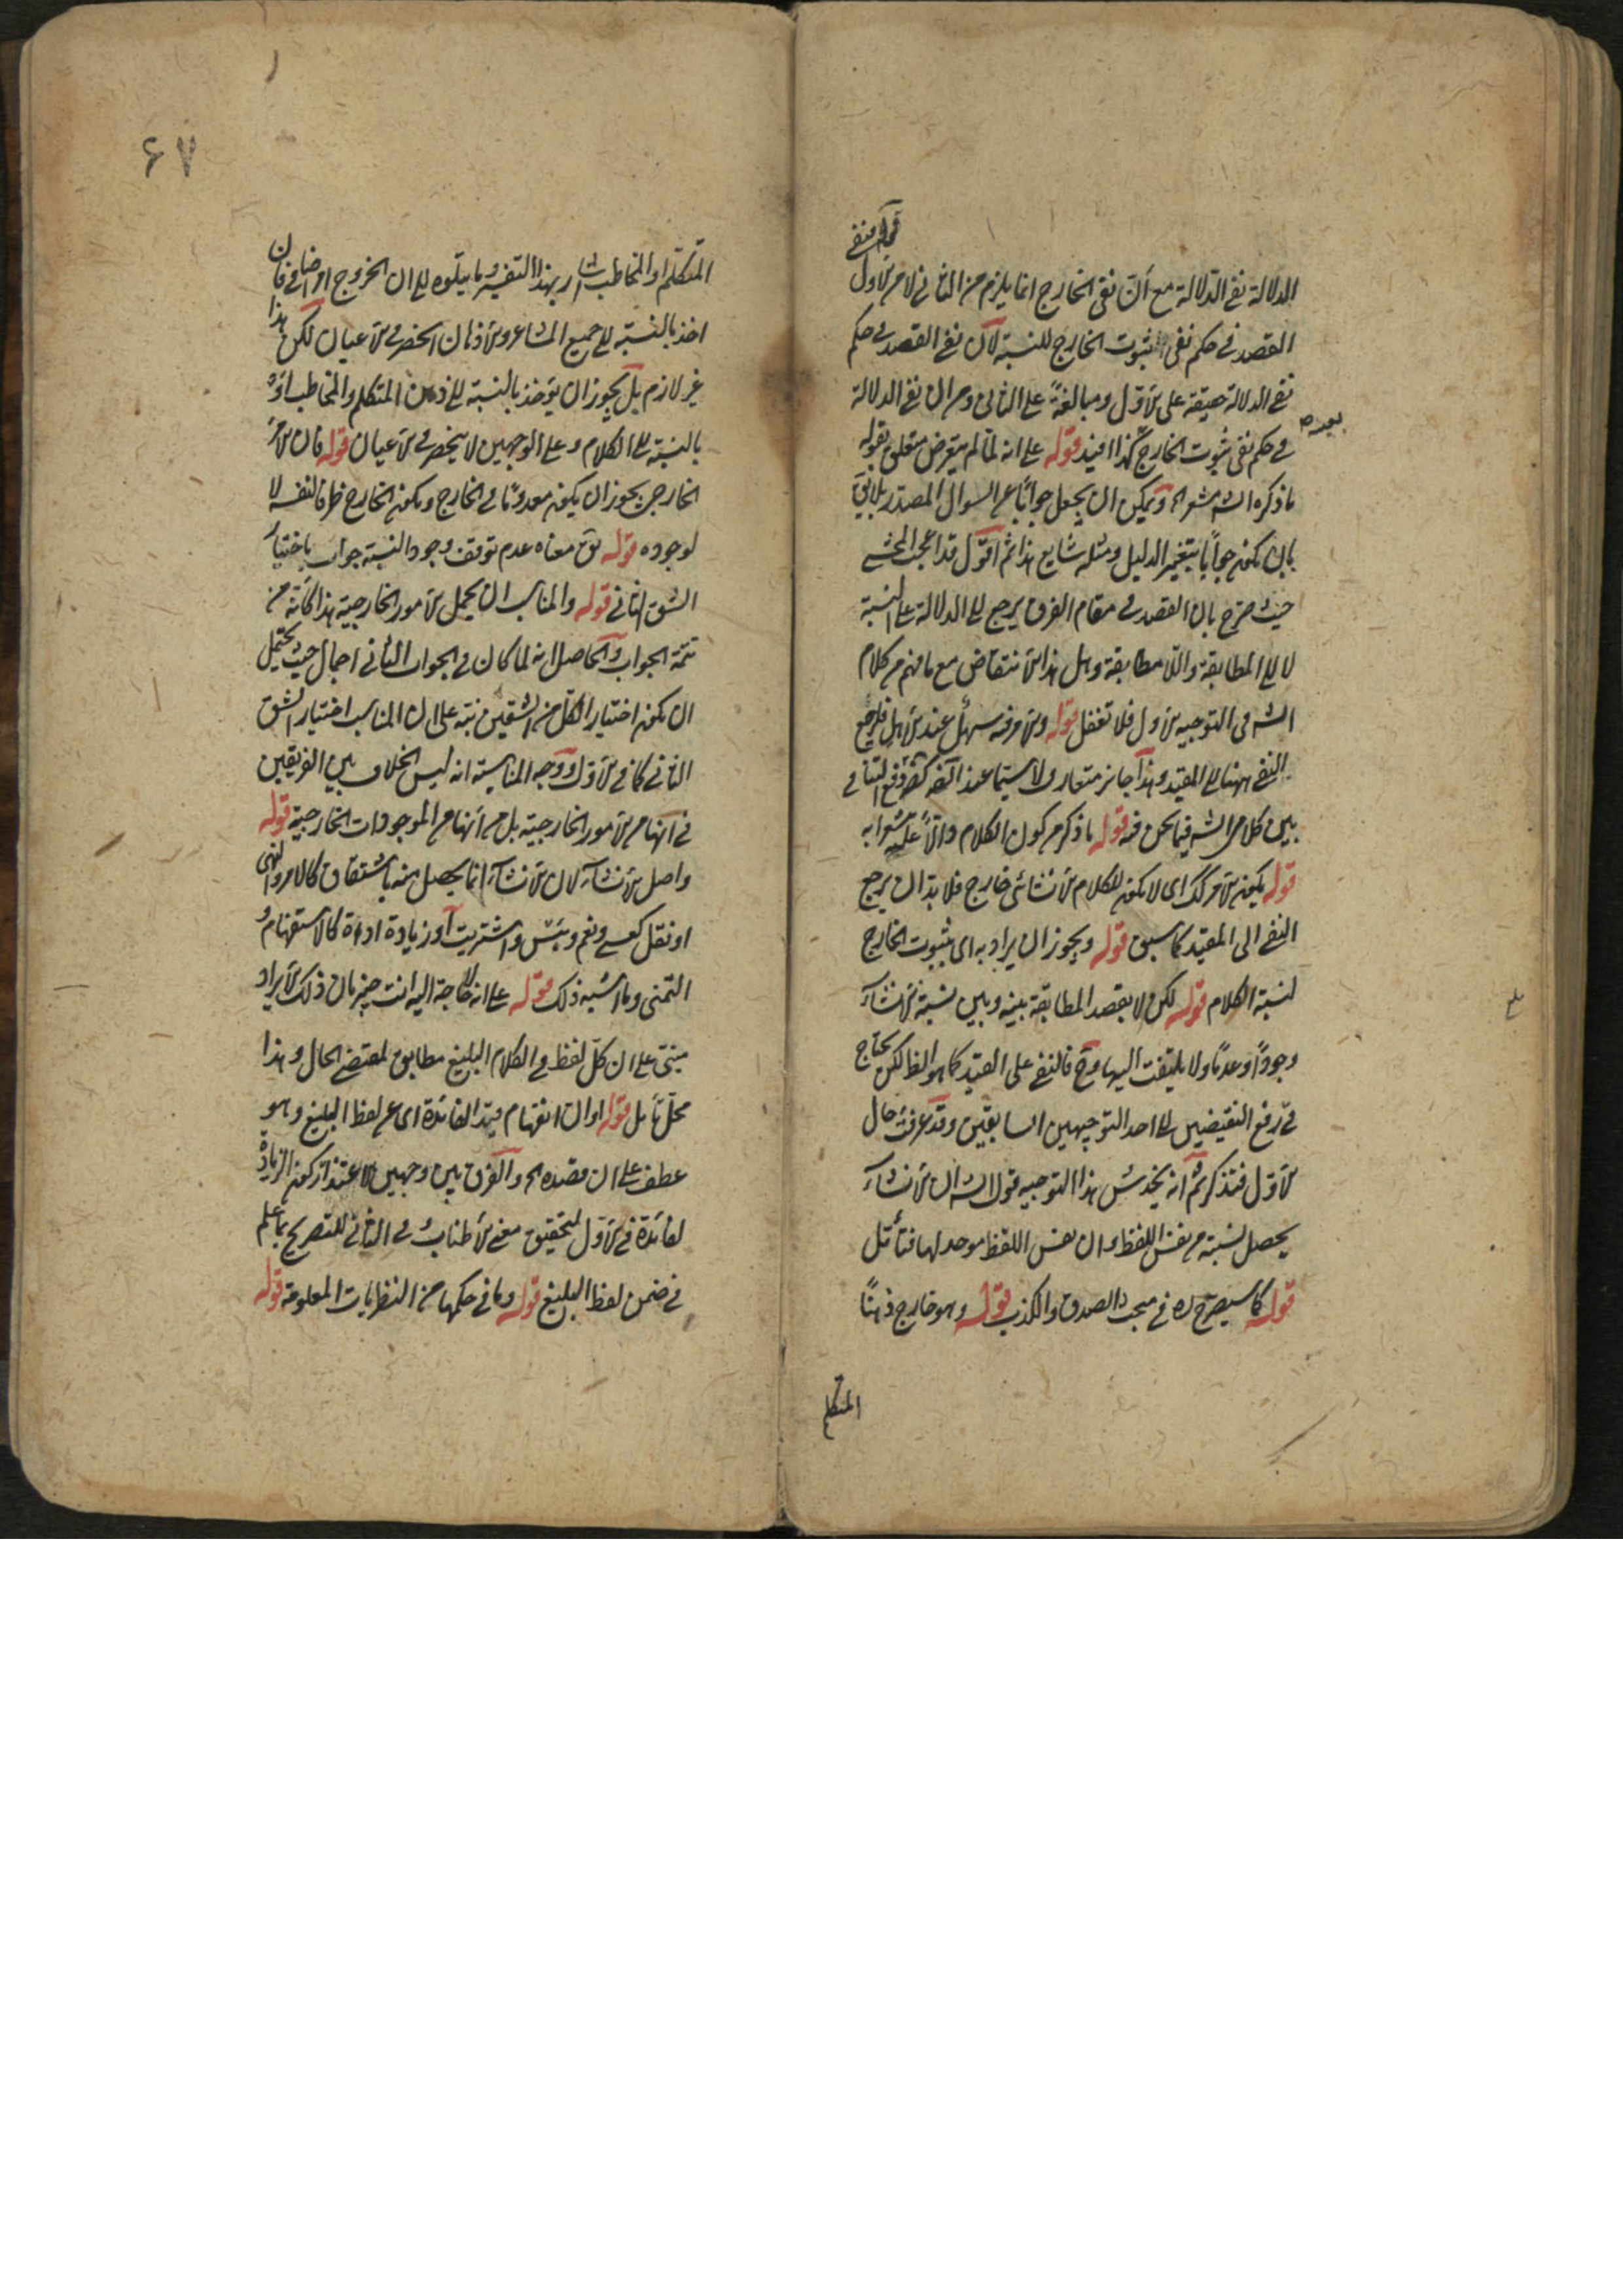 الدلالة نفى الدلالة مع ان نفى الخارج انما يلزم من الثانى لا من الاول
القصد فى حكم نفى ثبوت الخارج للنسبة لان نفى القصد فى حكم
نفى الدلالة حقيقة على الاول ومبالغةً على الثانى وح ان نفى الدلالة
فى حكم نفى ثبوت الخارج كذا افيد قوله على انه لما لم يتعرض متعلق بقوله
ما ذكره الش ويمكن ان يجعل جواباً عن السوال المصدر
بان يكون جواباً بتغيير الدليل ومثله شايع هذا ثم اقول قد اعجب المحشى
حيث صرح بان القصد فى مقام الفرق يرجع الى الدلالة على النسبة
لا الى المطابقة واللا مطابقة وهل هذا الا تناقض مع ما فهم من كلام
الش فى التوجيه الاول فلا تغفل قوله والامر فيه سهل عند الاهل فليرجع
النفى ههنا الى المقيد وهذا جايز متعارف ولا سيما عند لدفع التنافى
بين كلامى الش فيما نحن فيه قوله ما ذكر من كون الكلام دالاً على
قوله يكون الامر كك اى لا يكون للكلام الانشائى خارج فلا بد ان يرجع
النفى الى المقيد كما سبق قوله ويجوز ان يراد به اى بثبوت الخارج
لنسبة الكلام قوله لكن لا يقصد المطابقة بينه وبين نسبة الانشاء
وجوداً وعدماً ولا يلتفت اليها وح فالنفى على القيد كما هو الظ لكن يحتاج
فى رفع النقيضين الى احد التوجيهين السابقين وقد عرفت حال
الاول فتذكر ثم انه يخدش هذا التوجيه قول الش ان الانشاء
يحصل نسبته من نفس اللفظ وان نفس اللفظ موجد لها فتأمل
قوله كما سيصرح به فى مبحث الصدق والكذب قوله وهو خارج ذهناً
المتكلم
۶۷
المتكلم او المخاطب اشار بهذا التفسير وما يتلوه الى ان الخروج امر اضافى فان
اخذ بالنسبة الى جميع المشاعر والاذهان انحصر فى الاعيان لكن هذا
غير لازم بل يجوز ان يؤخذ بالنسبة الى ذهن المتكلم والمخاطب او
بالنسبة الى الكلام وعلى الوجهين لا ينحصر فى الاعيان قوله فان الامر
الخارجى يجوز ان يكون معدوماً فى الخارج ويكون الخارج ظرفا لنفسه لا
لوجوده قوله بق معناه عدم توقف وجود النسبة جواب باختيار
الشق الثانى قوله والمناسب ان يحمل الامور الخارجية هذا كانه من
تتمة الجواب والحاصل انه لما كان فى الجواب الثانى اجمال حيث يحتمل
ان يكون اختيارا لكل من الشقين نبه على ان المناسب اختيار الشق
الثانى كما فى الاول ووجه المناسبة انه ليس الخلاف بين الفريقين
فى انها من الامور الخارجية بل من انها من الموجودات الخارجية قوله
واصل الانشاء لان الانشاء انما يحصل منه باشتقاق كالامر والنهى
او نقل كعسى ونعم وبئس واشتريت او زيادة اداة كالاستفهام و
التمنى وما اشبه ذلك قوله على انه لا حاجة اليه انت خبير بان ذلك الايراد
مبنى على ان كل لفظ فى الكلام البليغ مطابق لمقتضى الحال وهذا
محل تأمل قوله او ان انفهام قيد الفائدة اى من لفظ البليغ وهو
عطف على ان مقصده والفرق بين وجهين الاعتذار كون الزيادة
لفائدة فى الاول لتحقيق معنى الاطناب وفى الثانى للتصريح بما علم
فى ضمن لفظ البليغ قوله وما فى حكمها من النظريات المعلومة قوله